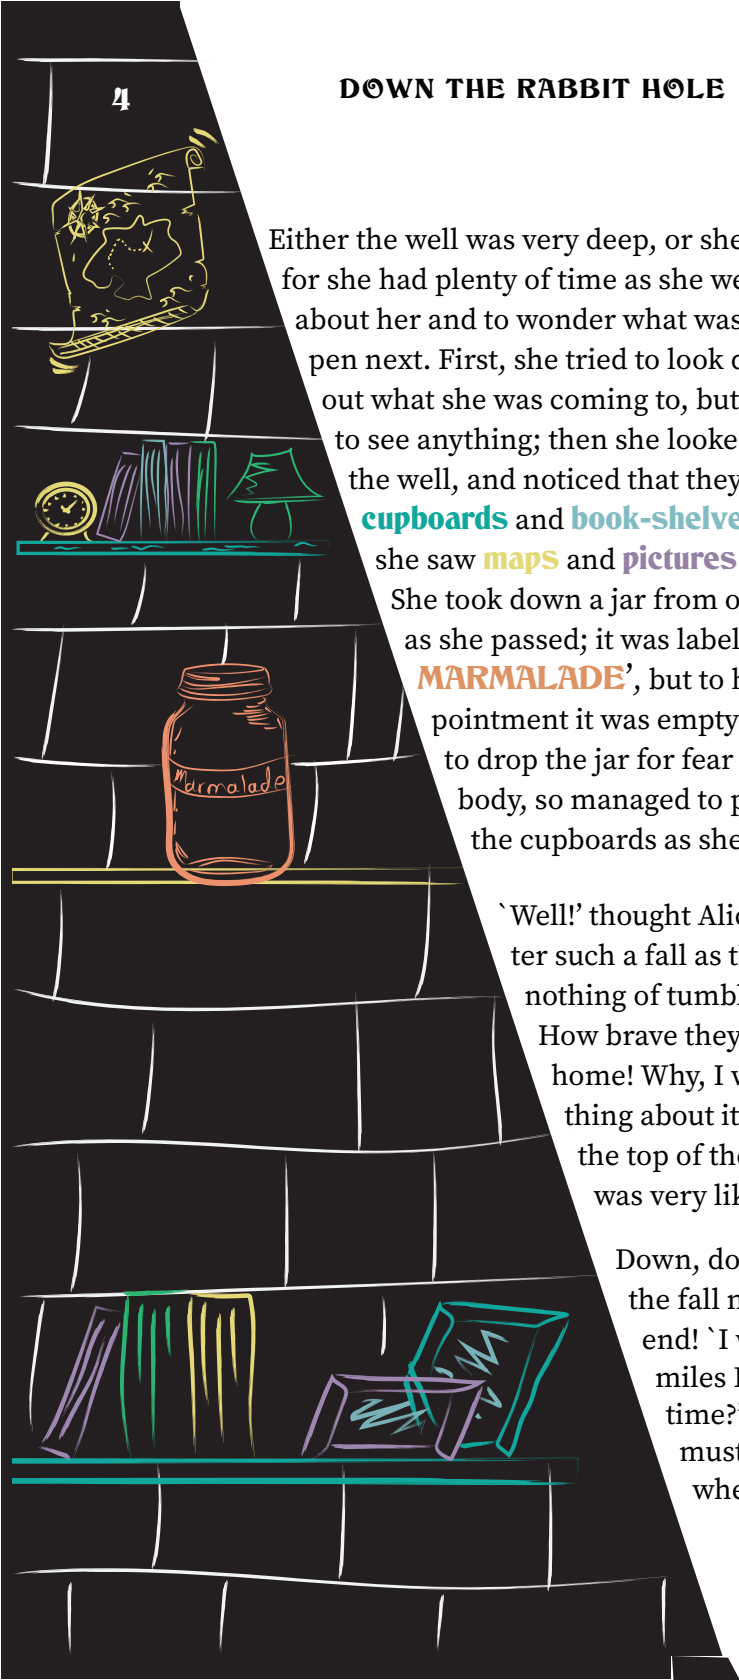 4
DOWN THE RABBIT HOLE
Either the well was very deep, or she
for she had plenty of time as she we
about her and to wonder what was
pen next. First, she tried to look d
out what she was coming to, but
to see anything; then she looke
the well, and noticed that they
cupboards and book-shelve
she saw maps and pictures
She took down a jar from o
as she passed; it was label
MARMALADE’, but to h
pointment it was empty
to drop the jar for fear
body, so managed to p
the cupboards as she
Marmalade
`Well!’ thought Alic
ter such a fall as t
nothing of tumbl
How brave they
home! Why, I w
thing about it
the top of the
was very lik
Down, do
the fall n
end! `I w
miles I
time?’
must
whe